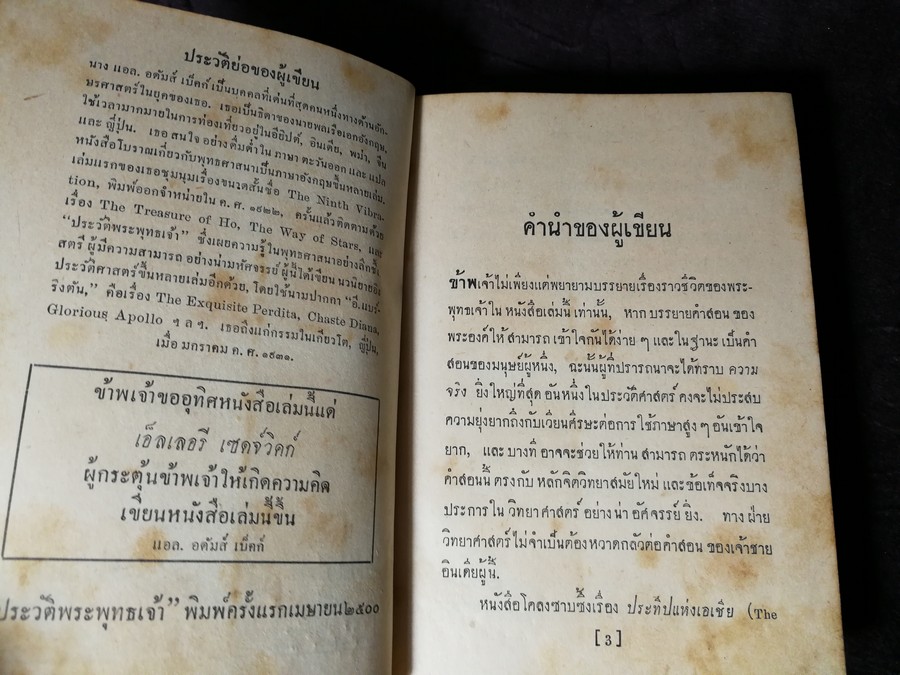 ประวัติย่อของผู้เขียน
นาง แอล. อดัมส์ เบ็คค์ เป็นบุคคลที่เด่นที่สุดคนหนึ่งทางด้านอัก-
ษรศาสตร์ในยุคของเธอ. เธอเป็นธิดาของนายพลเรือเอกอังกฤษ,
ใช้เวลามากมายในการท่องเที่ยวอยู่ในอียิปต์, อินเดีย, พม่า, จีน
และ ญี่ปุ่น. เธอ สนใจ อย่างดื่มด่ำใน ภาษา ตะวันออก และ แปล
หนังสือโบราณเกี่ยวกับพุทธศาสนาเป็นภาษาอังกฤษขึ้นหลายเล่ม.
เล่มแรกของเธอชุมนุมเรื่องขนาดสั้นชื่อ The Ninth Vibra-
tion, พิมพ์ออกจำหน่ายใน ค. ศ. ๑๙๒๒. ครั้นแล้วติดตามด้วย
เรื่อง The Treasure of Ho, The Way of Stars, และ
“ประวัติพระพุทธเจ้า” ซึ่งเผยความรู้ในพุทธศาสนาอย่างลึกซึ้ง.
สตรี ผู้มีความสามารถ อย่างน่ามหัศจรรย์ ผู้นี้ได้เขียน นวนิยายอิง
ประวัติศาสตร์ขึ้นหลายเล่มอีกด้วย, โดยใช้นามปากกา “อี. แบร์-
ริงตัน,” คือเรื่อง The Exquisite Perdita, Chaste Diana,
Glorious Apollo ฯ ล ฯ. เธอถึงแก่กรรมในเกียวโต, ญี่ปุ่น,
เมื่อ มกราคม ค. ศ. ๑๙๓๑.
ข้าพเจ้าขออุทิศหนังสือเล่มนี้แด่
เอ็ลเลอรี เซดจ์วิคก์
ผู้กระตุ้นข้าพเจ้าให้เกิดความคิด
เขียนหนังสือเล่มนี้ขึ้น
แอล. อดัมส์ เบ็คก์
ประวัติพระพุทธเจ้า” พิมพ์ครั้งแรกเมษายน๒๕๐๐
คำนำของผู้เขียน
ข้าพเจ้าไม่เพียงแต่พยายามบรรยายเรื่องราวชีวิตของพระ-
พุทธเจ้าใน หนังสือเล่มนี้ เท่านั้น, หาก บรรยายคำสอน ของ
พระองค์ให้ สามารถ เข้าใจกันได้ง่าย ๆ และในฐานะ เป็นคำ
สอนของมนุษย์ผู้หนึ่ง, ฉะนั้นผู้ที่ปรารถนาจะได้ทราบ ความ
จริง ยิ่งใหญ่ที่สุด อันหนึ่งในประวัติศาสตร์ คงจะไม่ประสบ
ความยุ่งยากถึงกับเวียนศีรษะต่อการใช้ภาษาสูง ๆ อันเข้าใจ
ยาก, และ บางที อาจจะช่วยให้ท่าน สามารถ ตระหนักได้ว่า
คำสอนนี้ ตรงกับ หลักจิตวิทยาสมัยใหม่ และข้อเท็จจริงบาง
ประการใน วิทยาศาสตร์ อย่างน่า อัศจรรย์ ยิ่ง. ทาง ฝ่าย
วิทยาศาสตร์ไม่จำเป็นต้องหวาดกลัวต่อคำสอน ของเจ้าชาย
อินเดียผู้นี้.
หนังสือโคลงซาบซึ้งเรื่อง ประทีปแห่งเอเซีย (The
[ 3 ]